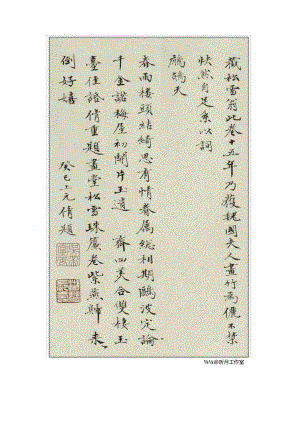 藏松雪翁此卷十五年乃獲魏國夫人畫竹為儷不禁
快然自足系以詞
鷓鴣天
春雨樓頭結綺思有情眷屬總相期鷗波定論
千金諾梅屋初開片玉遺 齋四美合雙樓玉
臺佳證倩重題畫堂松雪珠簾卷紫燕歸來
倒好嬉
癸巳上元倩題
%%@听月工作室